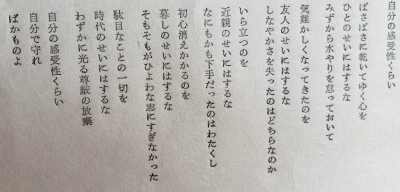 自分の感受性くらい
ぱさぱさに乾いてゆく心を
ひとのせいにはするな
みずから水やりを怠っておいて
気難かしくなってきたのを
友人のせいにはするな
しなやかさを失ったのはどちらなのか
いら立つのを
近親のせいにはするな
なにもかも下手だったのはわたくし
初心消えかかるのを
暮しのせいにはするな
そもそもがひよわな志にすぎなかった
駄目なことの一切を
時代のせいにはするな
わずかに光る尊厳の放棄
自分の感受性くらい
自分で守れ
ばかものよ